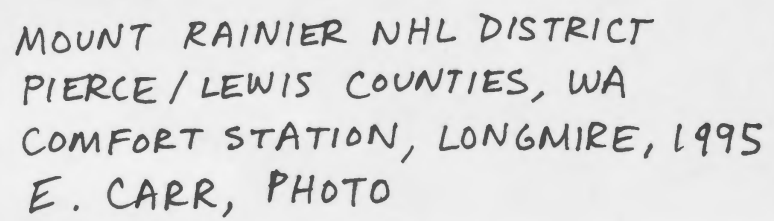 MOUNT RAINIER NHL DISTRICT
PIERCE/LEWIS COUNTIES, WA
COMFORT STATION, LONGMIRE, 1995
E. CARR, PHOTO